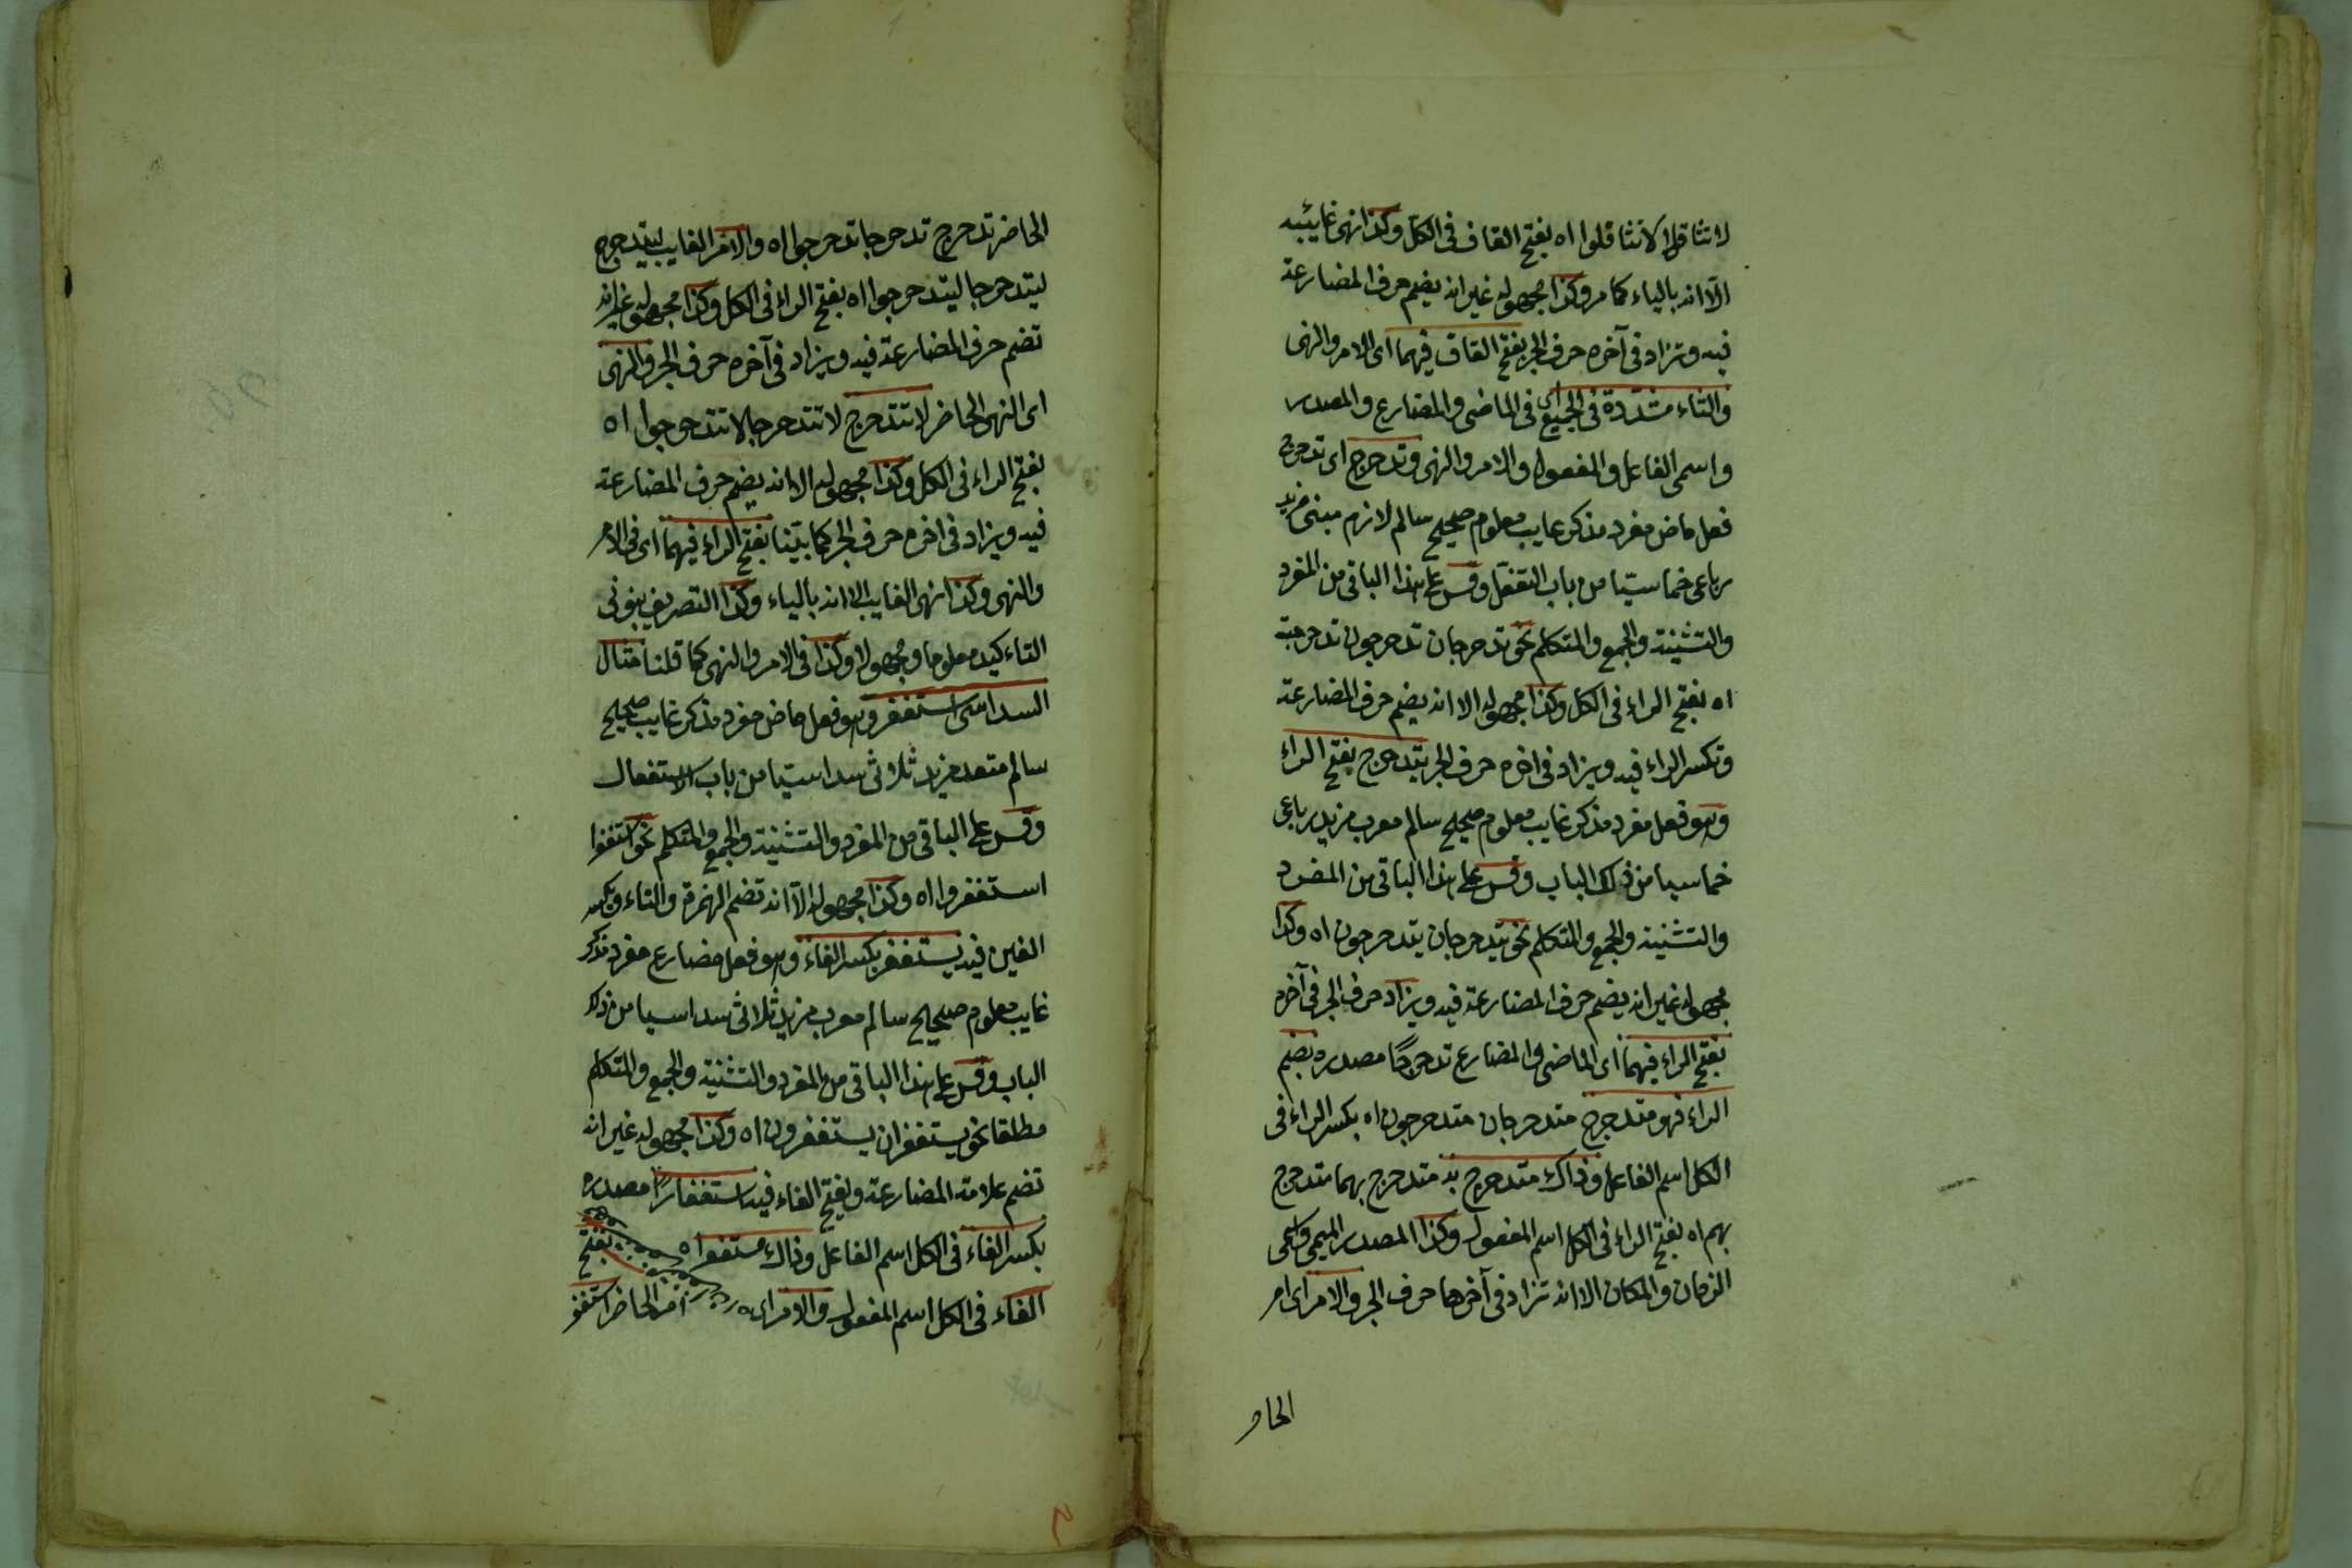 لا تثاقلا لا تثاقلوا اه بفتح القاف فى الكل وكذا نهى غايبه
الا انه بالياء كما مر وكذا مجهوله غير انه يضم حرف المضارعة
فيه وتزاد فى آخره حرف الجر بفتح القاف فيهما اى الامر والنهى
والتاء مشددة فى الجميع اى فى الماضى والمضارع والمصدر
واسمى الفاعل والمفعول والامر والنهى وتدحرج اى تدحرج
فعل ماض مفرد مذكر غايب معلوم صحيح سالم لازم مبنى مزيد
رباعى خماسيا من باب التفعلل وقس على هذا الباقى من المفرد
والتثنية والجمع والمتكلم نحو تدحرجان تدحرجون تدحرجة
اه بفتح الراء فى الكل وكذا مجهوله الا انه يضم حرف المضارعة
وتكسر الراء فيه ويزاد فى اخره حرف الجر يتدحرج بفتح الراء
وهو فعل مفرد مذكر غايب معلوم صحيح سالم معرب مزيد رباعى
خماسيا من ذلك الباب وقس على هذا الباقى من المفرد
والتثنية والجمع والمتكلم نحو يتدحرجان يتدحرجون اه وكذا
مجهوله غير انه يضم حرف المضارعة فيه ويزاد حرف الجر فى آخره
بفتح الراء فيهما اى الماضى والمضارع تدحرجا مصدره بضم
الراء فهو متدحرج متدحرجان متدحرجون اه بكسر الراء فى
الكل اسم الفاعل وذاك متدحرج به متدحرج بهما متدحرج
بهم اه بفتح الراء فى الكل اسم المفعول وكذا المصدر الميمى واسمى
الزمان والمكان الا انه تزاد فى آخرها حرف الجر والامر اى امر
الحا
الحاضر تدحرج تدحرجا تدحرجوا اه والامر الغايب ليتدحرج
ليتدحرجا ليتدحرجوا اه بفتح الراء فى الكل وكذا مجهوله غير انه
تضم حرف المضارعة فيه ويزاد فى آخره حرف الجر والنهى
اى النهى الحاضر لا تتدحرج لا تتدحرجا لا تتدحرجوا اه
بفتح الراء فى الكل وكذا مجهوله الا انه يضم حرف المضارعة
فيه ويزاد فى اخره حرف الجر كما بينا بفتح الراء فيهما اى فى الامر
والنهى وكذا نهى الغايب الا انه بالياء وكذا التصريف بنونى
التاءكيد معلوما ومجهولا وكذا فى الامر والنهى كما قلنا مثال
السداسى استغفر وهو فعل ماض مفرد مذكر غايب صحيح
سالم متعد مزيد ثلاثى سداسيا من باب الاستفعال
وقس على الباقى من المفرد والتثنية والجمع والمتكلم نحو استغفرا
استغفروا اه وكذا مجهوله الا انه تضم الهمزة والتاء وتكسر
الغين فيه يستغفر بكسر الفاء وهو فعل مضارع مفرد مذكر
غايب معلوم صحيح سالم معرب مزيد ثلاثى سداسيا من ذلك
الباب وقس على هذا الباقى من المفرد والتثنية والجمع والمتكلم
مطلقا نحو يستغفران يستغفرون اه وكذا مجهوله غير انه
تضم علامة المضارعة وبفتح الفاء فيه استغفارا مصدره
بكسر الفاء فى الكل اسم الفاعل وذاك مستغفر اه بفتح
الفاء فى الكل اسم المفعول والامر اى امر الحاضر استغفر